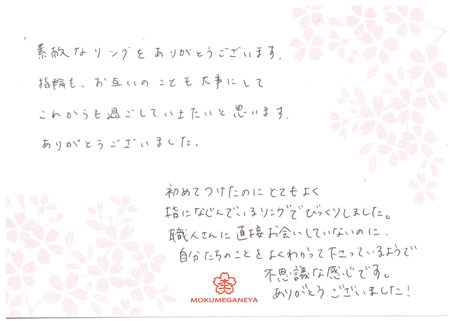 素敵なリングをありがとうございます。
指輪も、お互いのことも大事にして
これからも過ごしていきたいと思います。
ありがとうございました。
初めてつけたのにとてもよく
指になじんでいるリングでびっくりしました。
職人さんに直接お会いしていないのに、
自分たちのことをよくわかって下さっているようで
不思議な感じです。
ありがとうございました!
MOKUMEGANEYA